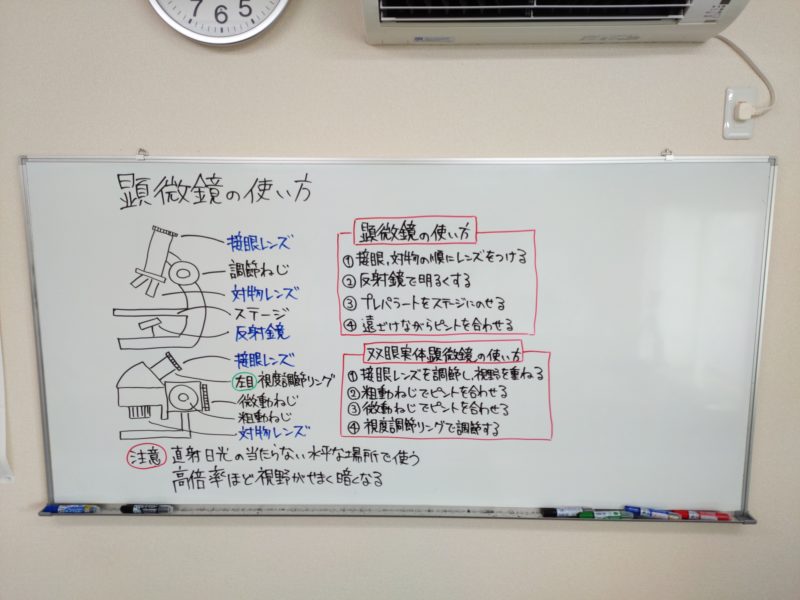 7 6 5
顕微鏡の使い方
接眼レンズ
調節ねじ
対物レンズ
ステージ
反射鏡
接眼レンズ
左目 視度調節リング
微動ねじ
粗動ねじ
対物レンズ
顕微鏡の使い方
①接眼、対物の順にレンズをつける
②反射鏡で明るくする
③プレパラートをステージにのせる
④遠ざけながらピントを合わせる
双眼実体顕微鏡の使い方
①接眼レンズを調節し、視野を重ねる
②粗動ねじでピントを合わせる
③微動ねじでピントを合わせる
④視度調節リングで調節する
注意 直射日光の当たらない水平な場所で使う
高倍率ほど視野がせまく暗くなる